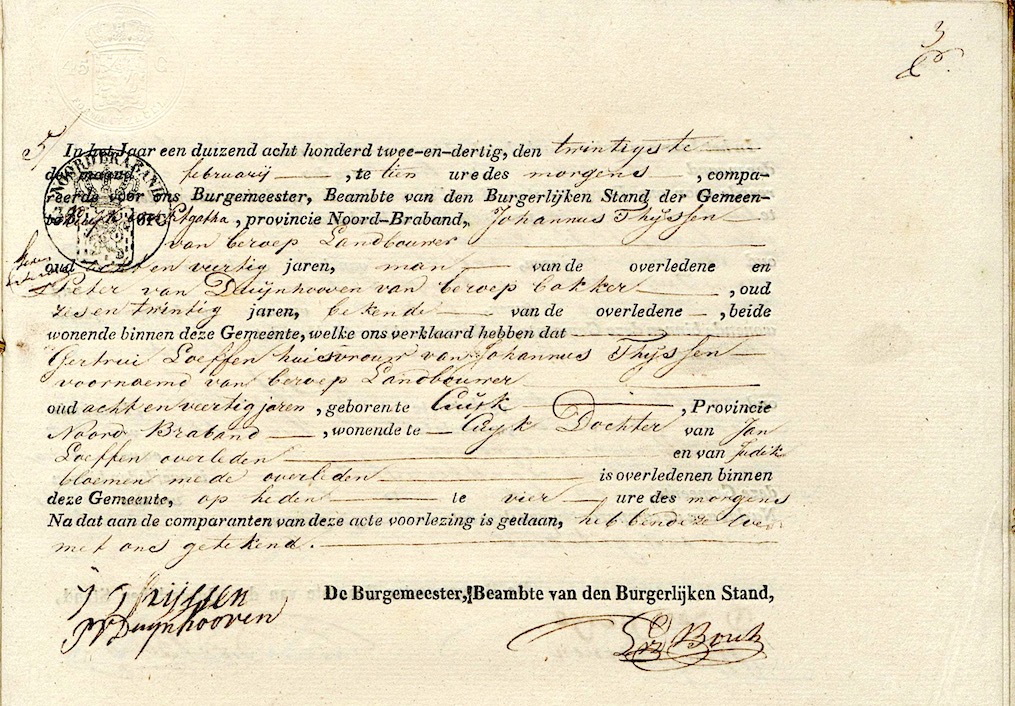 3
5
In het Jaar een duizend acht honderd twee-en-dertig, den twintigste
der maand februarij, te tien ure des morgens, compa-
reerde voor ons Burgemeester, Beambte van den Burgerlijken Stand der Gemeen-
provincie Noord-Braband, Johannus Thijssen
van beroep Landbouwer
oud acht en veertig jaren, man van de overledene en
Peter van Duijnhooven van beroep bakker, oud
zes en twintig jaren, bekende van de overledene, beide
wonende binnen deze Gemeente, welke ons verklaard hebben dat
Gertrui Loeffen huisvrouw van Johannus Thijssen
voornoemd van beroep Landbouwer
oud acht en veertig jaren, geboren te Cuijk, Provincie
Noord Braband, wonende te Cuyk Dochter van Jan
Loeffen overleden en van Judik
bloemen mede overleden is overledenen binnen
deze Gemeente, op heden te vier ure des morgens
Na dat aan de comparanten van deze acte voorlezing is gedaan, hebben deze
met ons getekend.
De Burgemeester, Beambte van den Burgerlijken Stand,
J Thijssen
PV Duijnhooven